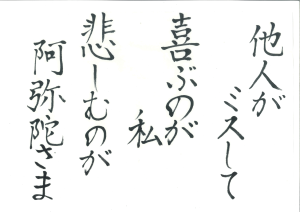 他人が
ミスして
喜ぶのが
私
悲しむのが
阿弥陀さま